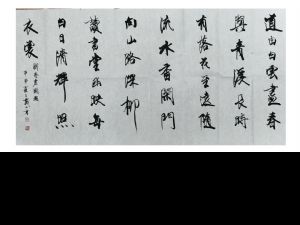 道由白雲盡春
與青溪長時
有落花至遠隨
流水香閑門
向山路深柳
讀書堂幽映每
白日清輝照
衣裳
劉昚虛闕題